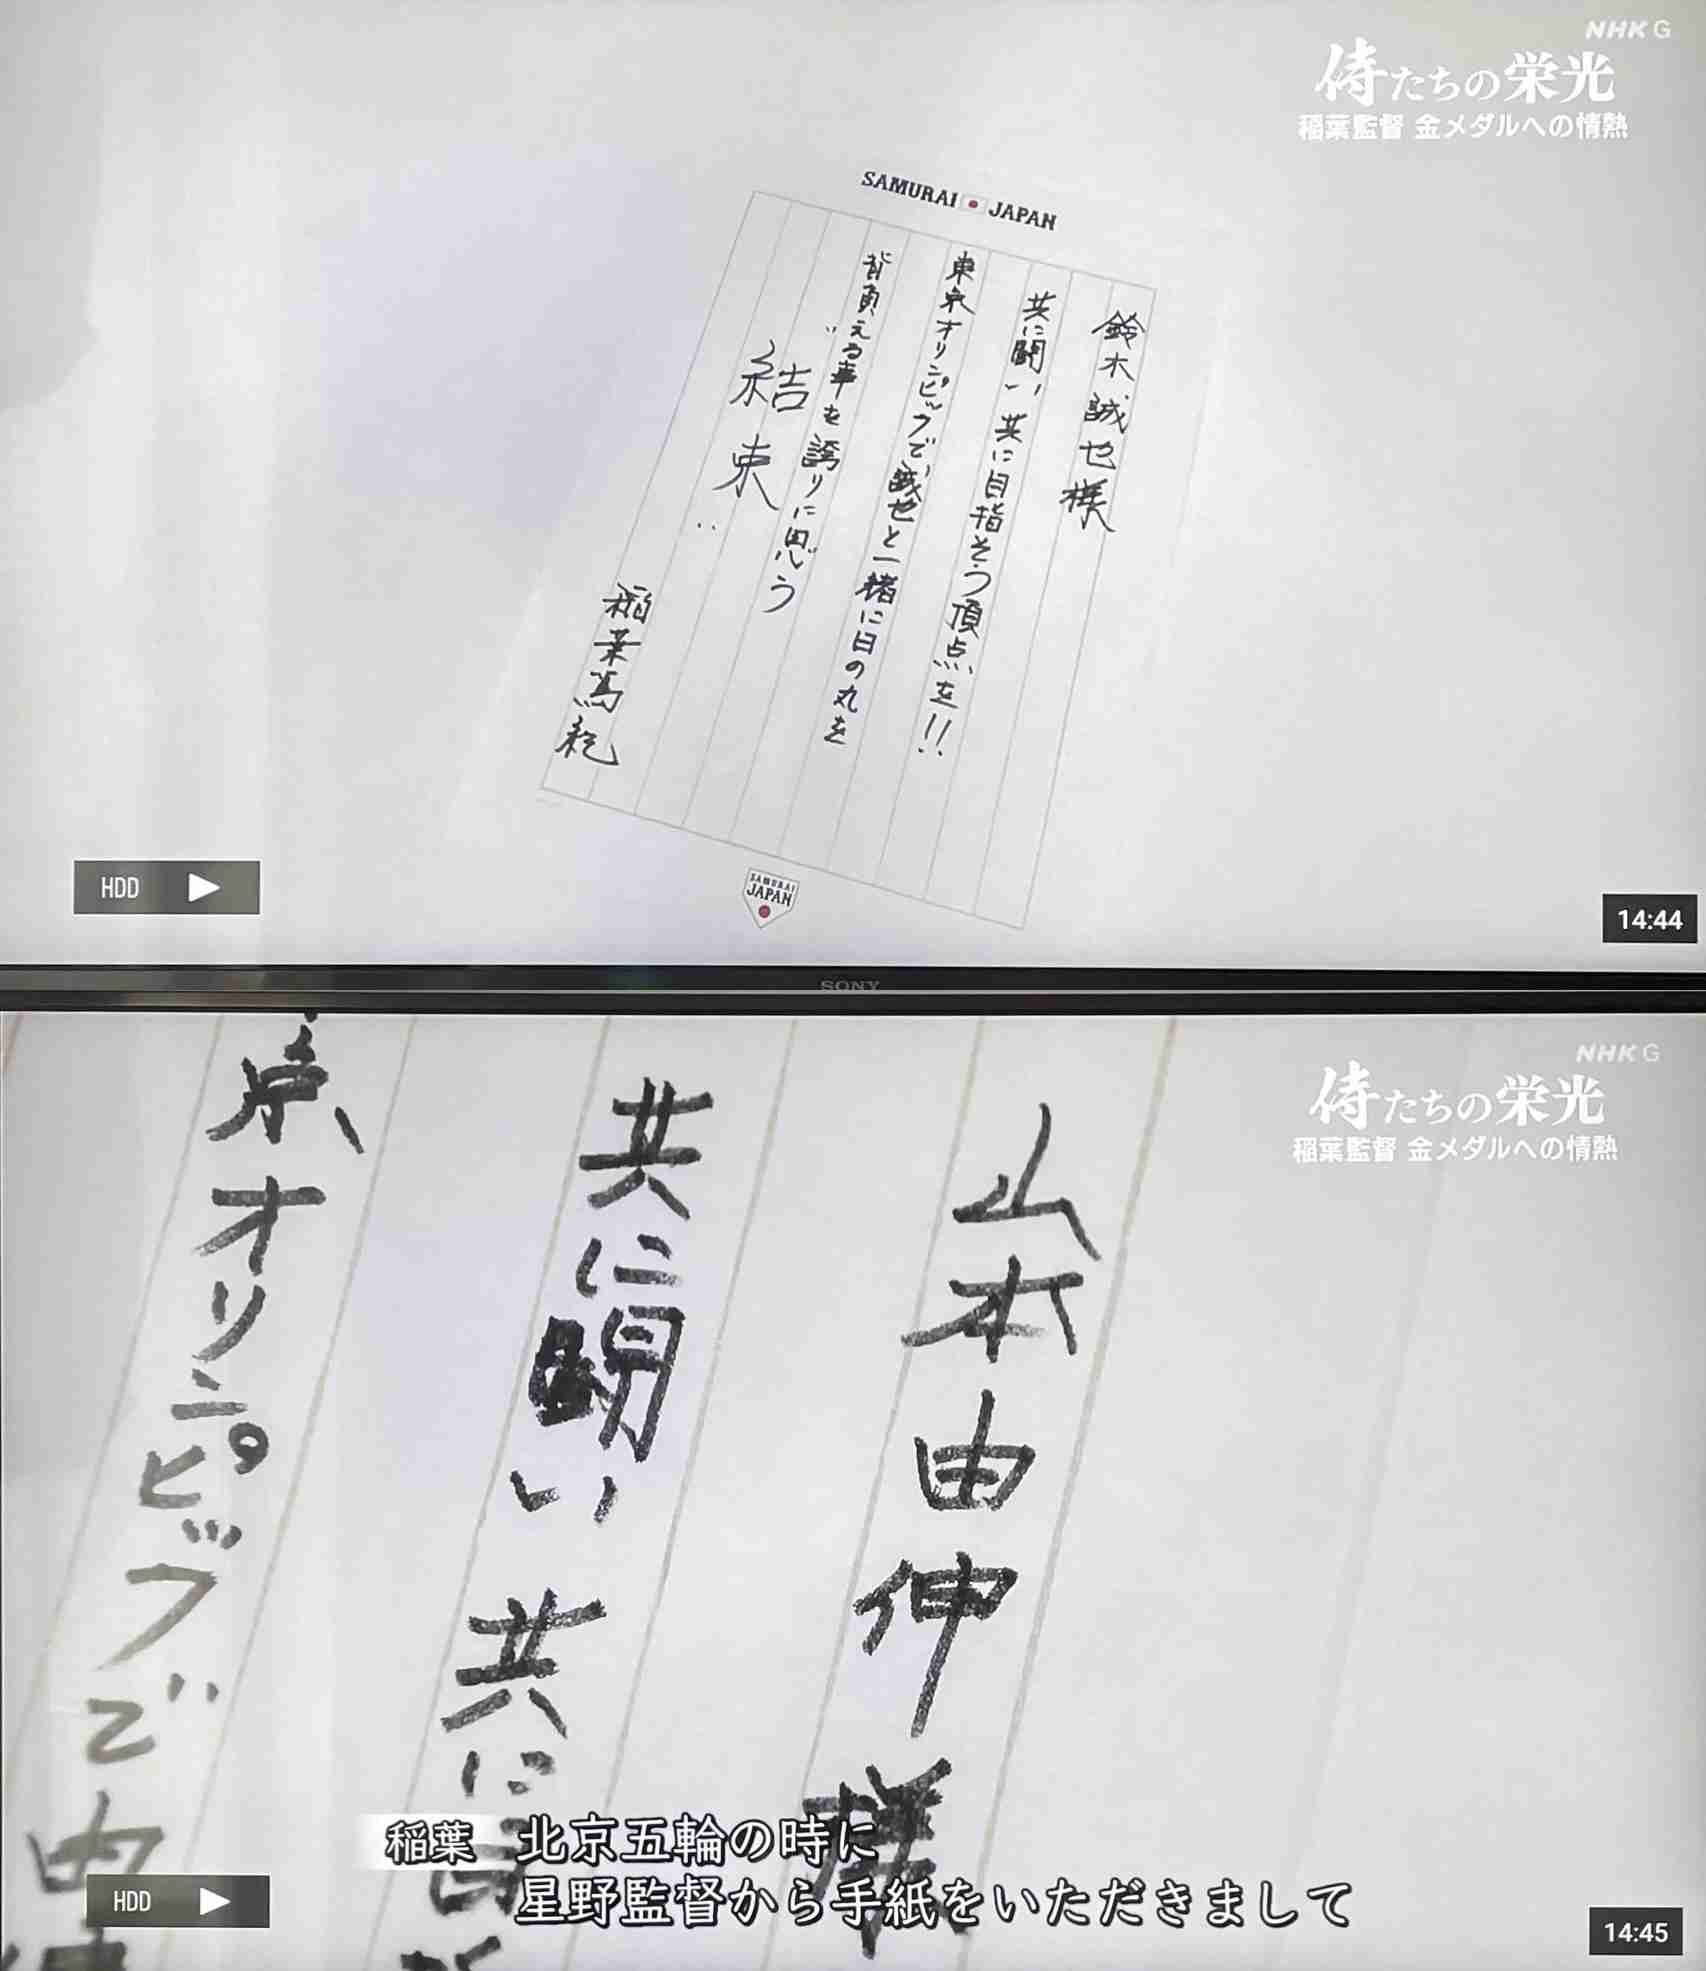 NHK G
侍たちの栄光
稲葉監督 金メダルへの情熱
SAMURAI JAPAN
鈴木誠也様
共に闘い 共に目指そう頂点を!!
東京オリンピックで誠也と一緒に日の丸を
背負える事を誇りに思う
"結束"
稲葉篤紀
SAMURAI
JAPAN
HDD
14:44
SONY
NHK G
侍たちの栄光
稲葉監督 金メダルへの情熱
山本由伸様
共に闘い 共に目
京オリンピックで由
稲葉 北京五輪の時に
星野監督から手紙をいただきまして
HDD
14:45